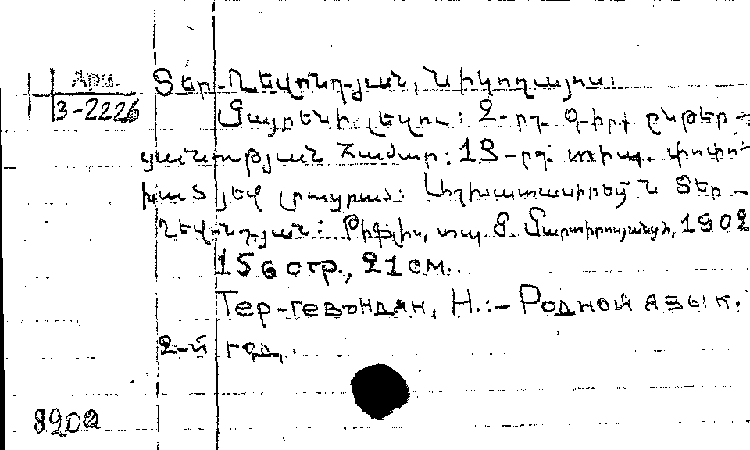 Арм.
3-2226
Տեր-Ղեվոնդյան, Նիկողայոս:
Մայրենի լեզու: 2-րդ գիրք ընթեր-
ցանության համար: 13-րդ տիպ. փոփո-
խած յեվ լրացրած: Աշխատասիրեց Ն Տեր-
Ղեվոնդյան: Թիֆլիս, տպ. Մ. Մարտիրոսյանցի, 1902
156 стр., 21 см.
Тер-Гевондян, Н.:- Родной язык.
2-й год.
8902